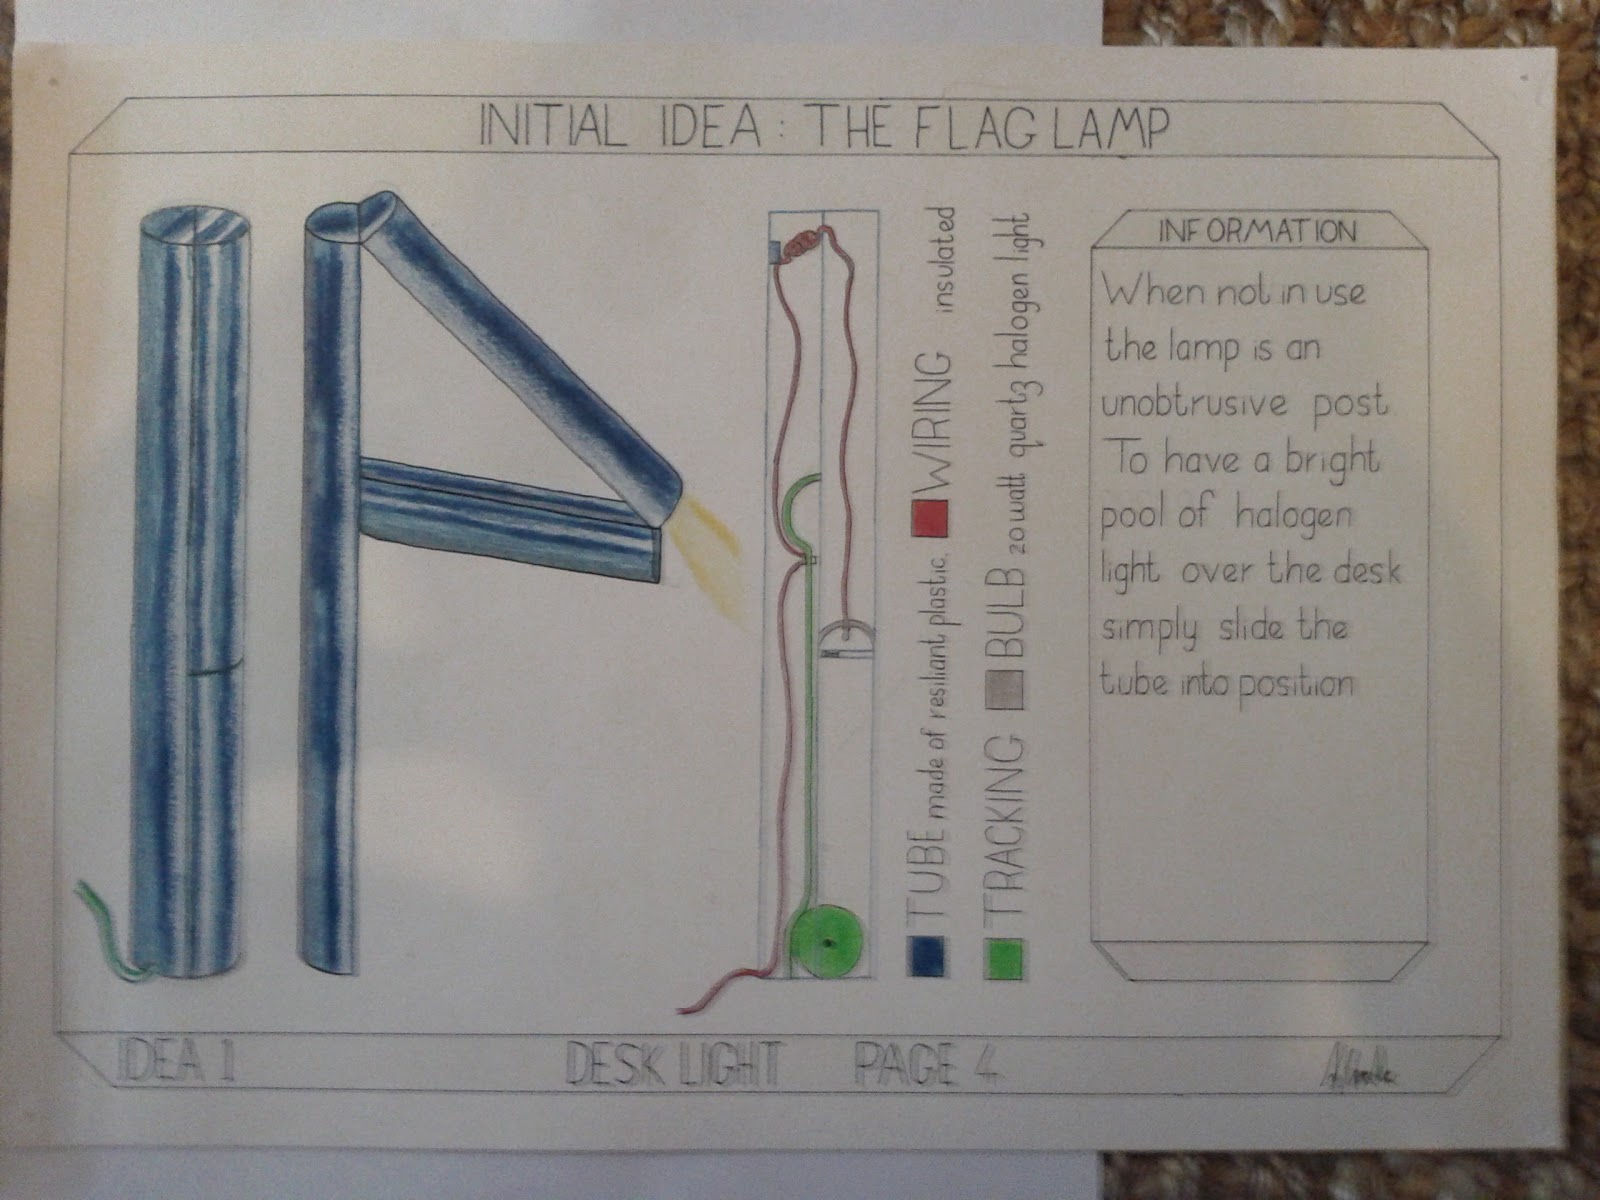 INITIAL IDEA : THE FLAG LAMP
TUBE made of resiliant plastic. WIRING insulated
TRACKING BULB 20 watt quartz halogen light
INFORMATION
When not in use
the lamp is an
unobtrusive post.
To have a bright
pool of halogen
light over the desk
simply slide the
tube into position
IDEA 1 DESK LIGHT PAGE 4